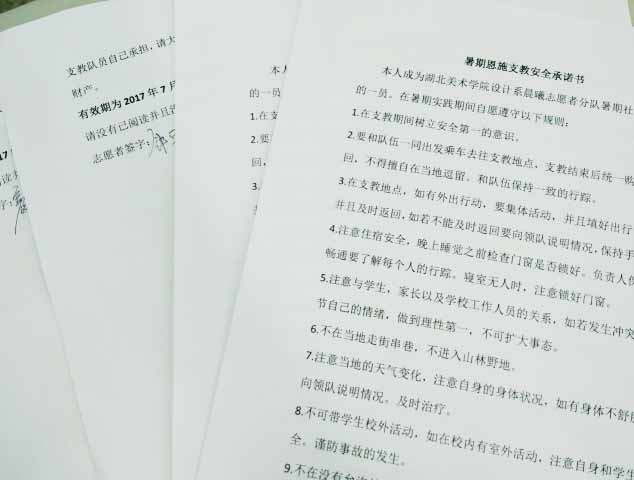 支教队员自己承担，请大
财产。
有效期为 2017 年 7 月
请没有已阅读并且
志愿者签字：
本人
的一员
1.在支
2.要
回，
3.
暑期恩施支教安全承诺书
本人成为湖北美术学院设计系晨曦志愿者分队暑期社
的一员。在暑期实践期间自愿遵守以下规则：
1.在支教期间树立安全第一的意识。
2.要和队伍一同出发乘车去往支教地点，支教结束后统一购
回，不得擅自在当地逗留。和队伍保持一致的行踪。
3.在支教地点，如有外出行动，要集体活动，并且填好出行
并且及时返回，如若不能及时返回要向领队说明情况，保持手
4.注意住宿安全，晚上睡觉之前检查门窗是否锁好。负责人
畅通要了解每个人的行踪。寝室无人时，注意锁好门窗。
5.注意与学生，家长以及学校工作人员的关系，如若发生冲突
节自己的情绪，做到理性第一，不可扩大事态。
6.不在当地走街串巷，不进入山林野地。
7.注意当地的天气变化，注意自身的身体状况，如有身体不舒服
向领队说明情况。及时治疗。
8.不可带学生校外活动，如在校内有室外活动，注意自身和学生
全。谨防事故的发生。
9.不在没有允许